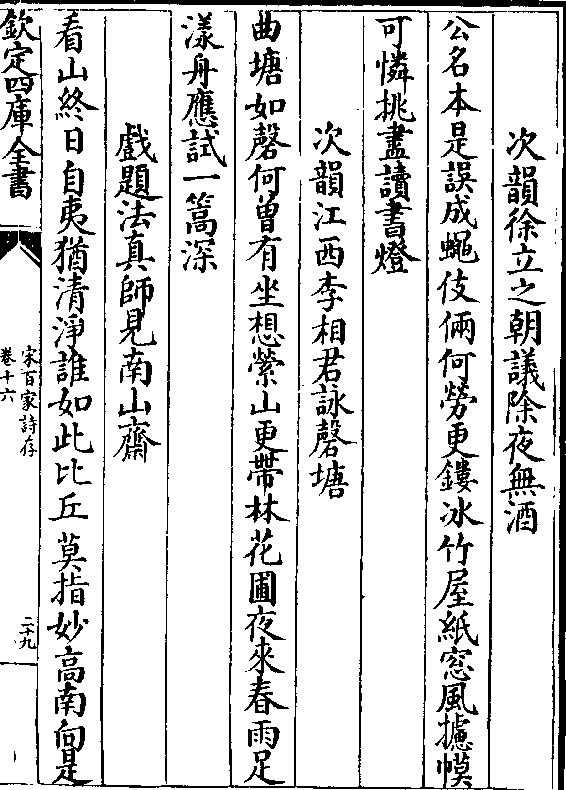 次韻徐立之朝議除夜無酒
公名本是誤成蠅伎倆何勞更鏤冰竹屋紙窓風攄幙
可憐挑盡讀書燈
次韻江西李相君詠磬塘
曲塘如磬何曾有坐想縈山更帶林花圃夜來春雨足
漾舟應試一篙深
戲題法真師見南山齋
看山終日自夷猶清淨誰如此比丘莫指妙高南向是
欽定四庫全書
宋百家詩存
卷十六
二十九